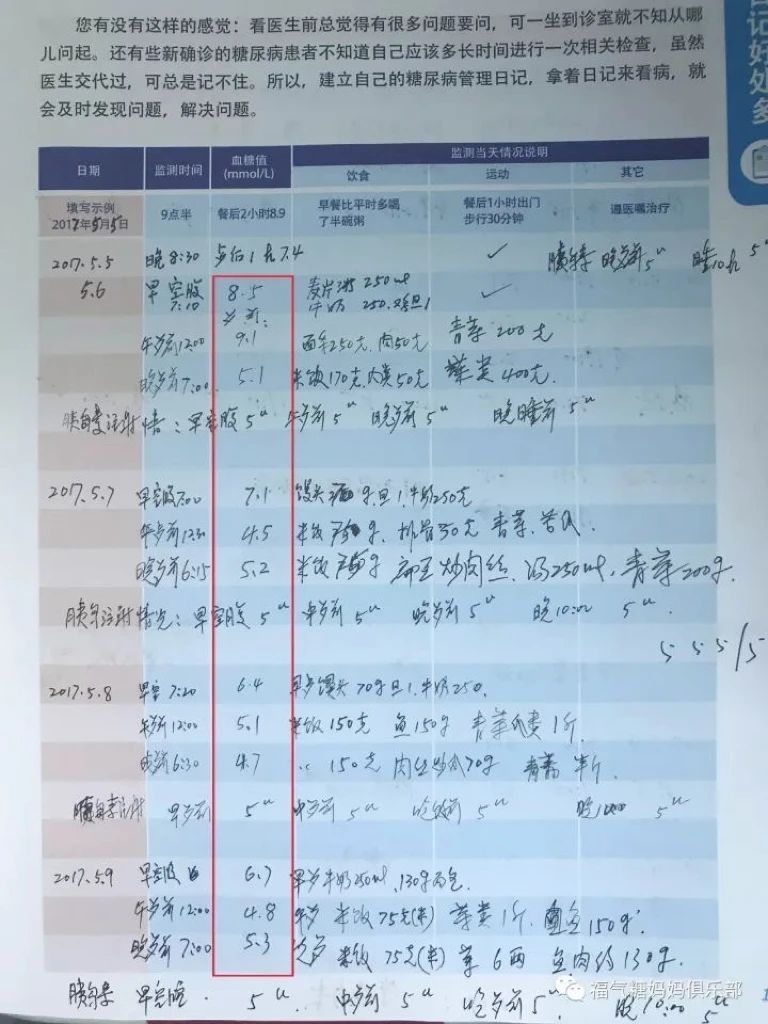 您有没有这样的感觉：看医生前总觉得有很多问题要问，可一坐到诊室就不知从哪
儿问起。还有些新确诊的糖尿病患者不知道自己应该多长时间进行一次相关检查，虽然
医生交代过，可总是记不住。所以，建立自己的糖尿病管理日记，拿着日记来看病，就
会及时发现问题，解决问题。
记好处多
日期 监测时间 血糖值 (mmol/L) 监测当天情况说明
饮食 运动 其它
填写示例 2017年5月5日 9点半 餐后2小时8.9 早餐比平时多喝了半碗粥 餐后1小时出门步行30分钟 遵医嘱治疗
2017.5.5 晚8:30 后1h 7.4 ✓ 胰岛素 晚岁前5u 睡10h 5u
5.6 早空腹 7:10 8.5 麦片 250ml 牛奶 250. 旦1 ✓
午岁前12:00 9.1 250克.肉50克 青菜200克
晚岁前7:00 5.1 米饭170克, 50克 菜类400克
早空腹5u 午岁前5u 晚岁前5u 晚睡前5u
2017.5.7 早空腹7:00 7.1 馒头 g.旦1.牛奶250克
午岁前12:30 4.5 米饭 g, 排骨50克 青菜、苦瓜.
晚岁前6:15 5.2 米饭 g 炒肉丝、汤250ml, 青菜200g.
早空腹5u 中岁前5u 晚岁前5u 晚10:00 5u.
5 5 5/5
2017.5.8 早空7:20 6.4 早岁馒头70g旦1.牛奶250.
午岁前12:00 5.1 米饭150克 鱼150g 青菜 1斤
晚岁前6:30 4.7 150克 70g 青菜 半斤
早岁前 5u 中岁前5u 5u 晚10:00 5u
2017.5.9 早空腹 6.7 早岁牛奶250ml,130g面包.
午岁前12:00 4.8 午岁 米饭75克(米) 菜类1斤, 鱼150g.
晚岁前7:00 5.3 米饭75克(米) 菜6两 鱼肉约130g.
胰岛素 早空腹. 5u 中岁前5u 岁前5u 晚10:00 5u
福气糖妈妈俱乐部